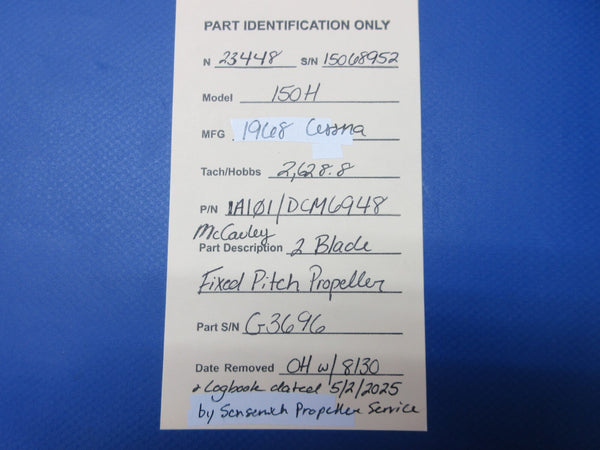 PART IDENTIFICATION ONLY
N 23448 S/N 15068952
Model 150H
MFG 1968 Cessna
Tach/Hobbs 2,628.8
P/N 1A101/DCM6948
McCauley
Part Description 2 Blade
Fixed Pitch Propeller
Part S/N G3696
Date Removed OH w/ 8130
& Logbook dated 5/2/2025
by Sensenich Propeller Service